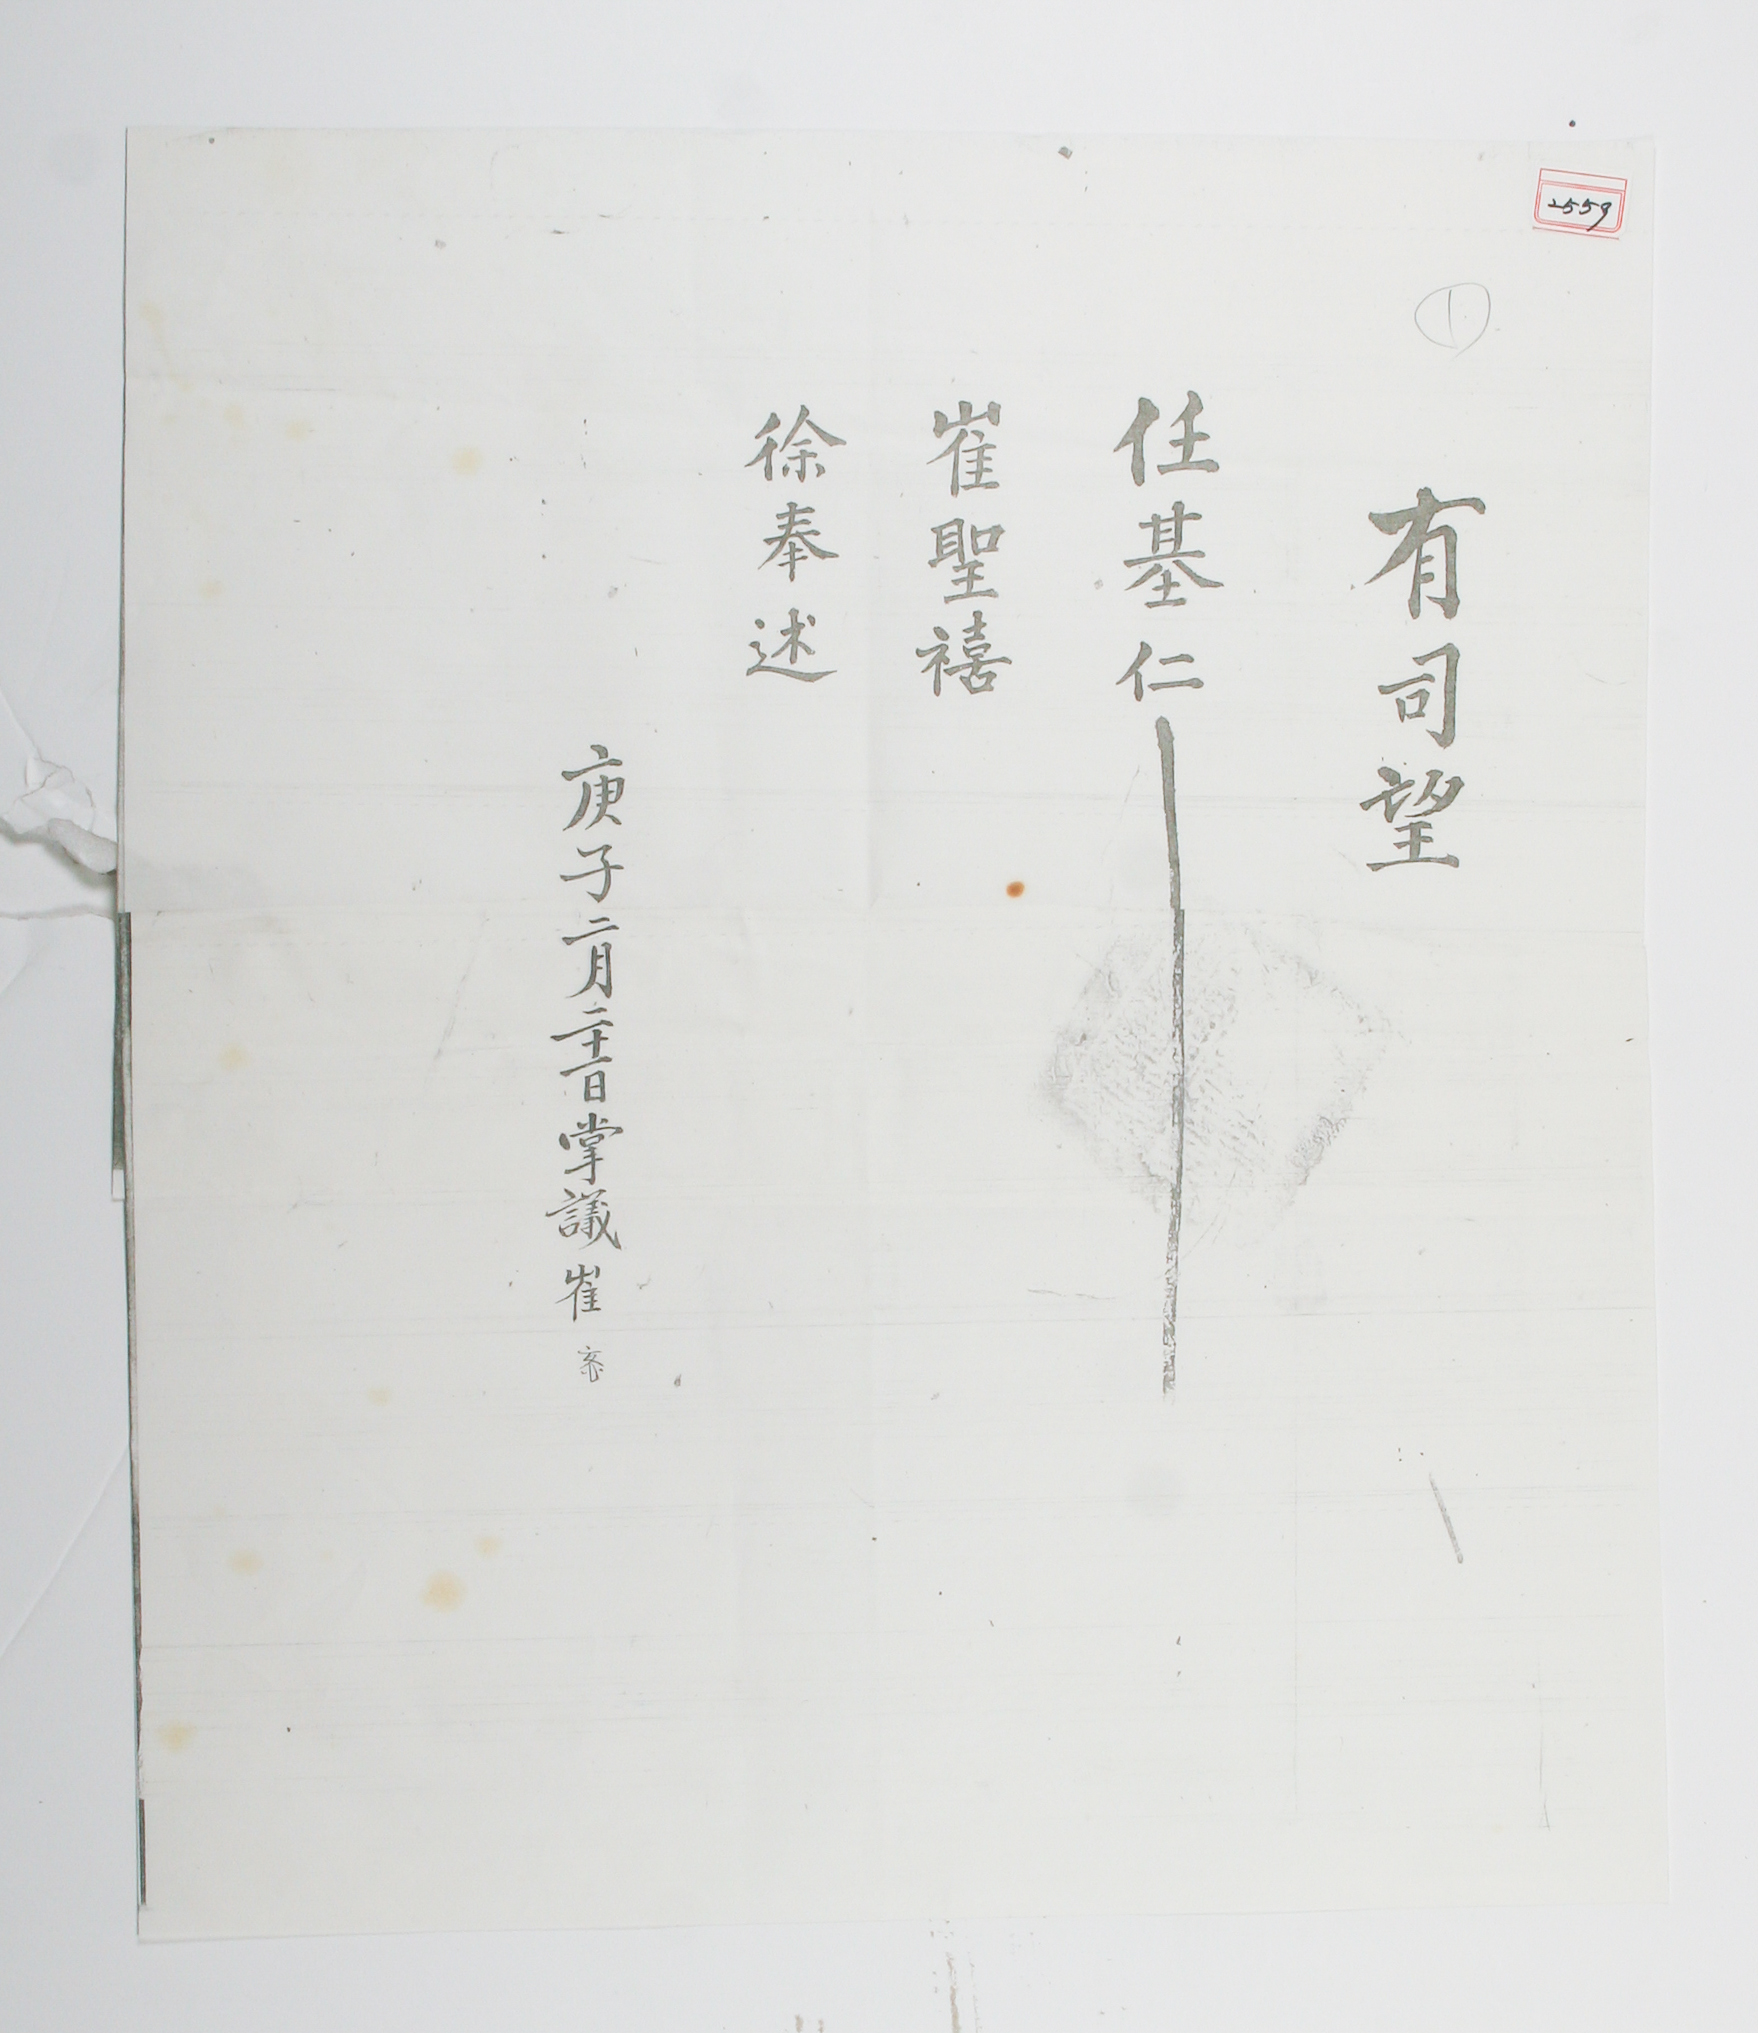 2559
①
有司望
任基仁
崔聖禧
徐奉述
庚子二月二十一日掌議崔